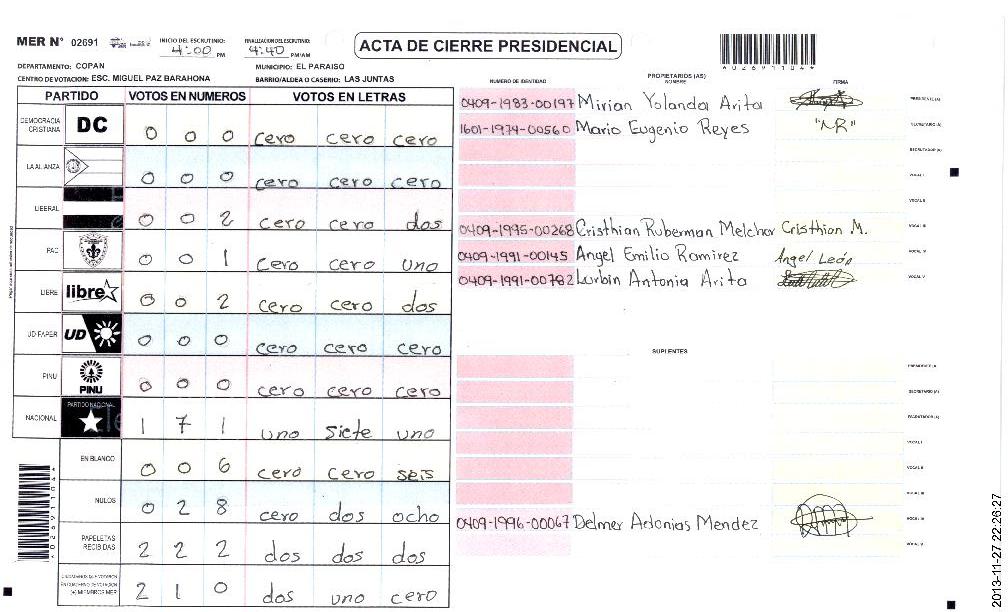 MER N° 02691
INICIO DEL ESCRUTINIO: 4:00 PM
FINALIZACION DEL ESCRUTINIO: 4:40 PM/AM
ACTA DE CIERRE PRESIDENCIAL
*02691104*
DEPARTAMENTO: COPAN
MUNICIPIO: EL PARAISO
CENTRO DE VOTACION: ESC. MIGUEL PAZ BARAHONA
BARRIO/ALDEA O CASERIO: LAS JUNTAS
PARTIDO VOTOS EN NUMEROS VOTOS EN LETRAS
DEMOCRACIA CRISTIANA DC 0 0 0 cero cero cero
LA ALIANZA 0 0 0 cero cero cero
LIBERAL 0 0 2 cero cero dos
PAC 0 0 1 cero cero uno
LIBRE libre 0 0 2 cero cero dos
UD FAPER UD 0 0 0 cero cero cero
PINU PINU 0 0 0 cero cero cero
NACIONAL PARTIDO NACIONAL 1 7 1 uno siete uno
EN BLANCO 0 0 6 cero cero seis
NULOS 0 2 8 cero dos ocho
PAPELETAS RECIBIDAS 2 2 2 dos dos dos
CIUDADANOS QUE VOTARON EN CUADERNO DE VOTACION (+) MIEMBROS MER 2 1 0 dos uno cero
*02691104*
PROPIETARIOS (AS)
NUMERO DE IDENTIDAD NOMBRE FIRMA
0409-1983-00197 Mirian Yolanda Arita PRESIDENTE (A)
1601-1974-00560 Mario Eugenio Reyes "MR" SECRETARIO (A)
ESCRUTADOR (A)
VOCAL I
VOCAL II
0409-1995-00268 Cristhian Ruberman Melchor Cristhian M. VOCAL III
0409-1991-00145 Angel Emilio Ramirez Angel León VOCAL IV
0409-1991-00782 Lurbin Antonia Arita VOCAL V
SUPLENTES
PRESIDENTE (A)
SECRETARIO (A)
ESCRUTADOR (A)
VOCAL I
VOCAL II
VOCAL III
0409-1996-00067 Delmer Adonias Mendez VOCAL IV
VOCAL V
2013-11-27 22:26:27